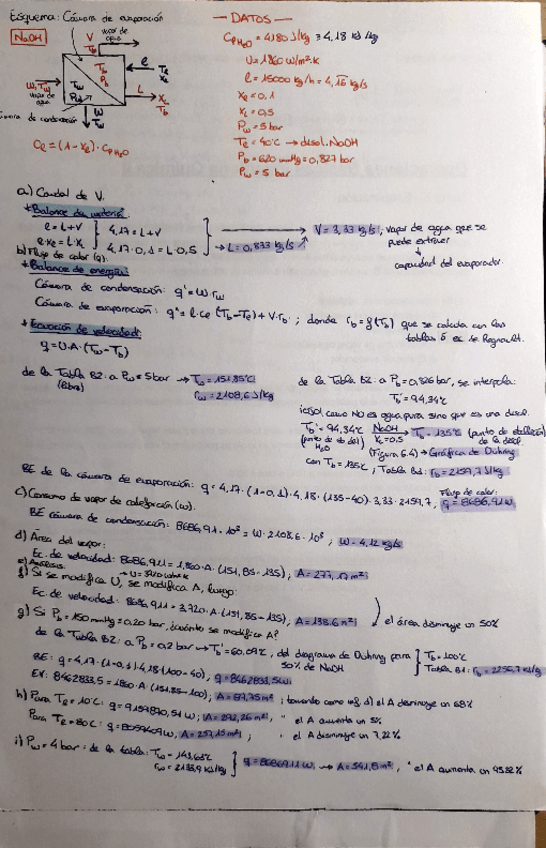 Esquema: Cámara de evaporación
NaOH
vapor de agua
V
T_b
T_b
P_b
l
x_e
T_e
W, T_w
vapor de agua
T_w
P_w
L
x_L
T_b
W
T_w
Cámara de condensación
C_e = (1-x_e) · C_pH2O
— DATOS —
C_pH2O = 4180 J/kg = 4,18 kJ/kg
U = 1860 W/m²·K
l = 15000 kg/h = 4,16 kg/s
x_e = 0,1
x_L = 0,5
P_w = 5 bar
T_e = 40°C → disol. NaOH
P_b = 620 mmHg = 0,827 bar
P_w = 5 bar
a) Caudal de V.
* Balance de materia:
l = L+V } 4,17 = L+V
l·x_e = L·x_L } 4,17·0,1 = L·0,5 → L = 0,833 kg/s
V = 3,33 kg/s, vapor de agua que se puede extraer
↓
capacidad del evaporador.
b) Flujo de calor (q).
* Balance de energía:
Cámara de condensación: q = W·r_w
Cámara de evaporación: q = l·c_e (T_b-T_e) + V·r_b ; donde r_b = f(T_b) que se calcula con las tablas ó ec. de Regnault.
* Ecuación de velocidad:
q = U·A·(T_w-T_b)
de la Tabla B2: a P_w = 5 bar → T_w = 151,85°C
(libro) r_w = 2108,6 kJ/kg
de la Tabla B2: a P_b = 0,826 bar, se interpola:
T_b' = 94,34°C
como NO es agua pura sino que es una disol.
T_b' = 94,34°C NaOH x_L = 0,5 → T_b = 135°C (punto de ebullición de la disol.
(punto de eb del H2O) (Figura 6.4) → Gráfica de Dühring
con T_b = 135°C, Tabla B1: r_b = 2159,7 kJ/kg
BE de la cámara de evaporación: q = 4,17·(1-0,1)·4,18·(135-40)+3,33·2159,7,
Flujo de calor:
q = 8686,91 W
c) Consumo de vapor de calefacción (w).
BE cámara de condensación: 8686,91·10³ = W·2108,6·10³, W = 4,12 kg/s
d) Área del vapor:
Ec. de velocidad: 8686,911 = 1,860·A·(151,85-135), A = 277,17 m²
e) Análisis:
f) Si se modifica U, se modifica A, luego:
Ec de velocidad: 8686,911 = 3,720·A·(151,85-135), A = 138,6 m² el área disminuye un 50%
g) Si P_b = 150 mmHg = 0,20 bar, ¿cuánto se modifica A?
de la Tabla B2: a P_b = 0,2 bar → T_b' = 60,09°C, del diagrama de Dühring para 50% de NaOH
T_b = 100°C
Tabla B1: r_b = 2256,7 kJ/kg
BE: q = 4,17·(1-0,1)·4,18·(100-40), q = 8462833,5 W
EV: 8462833,5 = 1860·A·(151,85-100), A = 87,75 m² ; tomando como ref d) el A disminuye un 68%
h) Para T_e = 10°C: q = 9157870,51 W, A = 292,26 m², " el A aumenta un 5%
Para T_e = 80°C: q = 8059409 W, A = 257,15 m², " el A disminuye un 7,22%
i) P_w = 4 bar: de la tabla: T_w = 143,63°C
r_w = 2133,9 kJ/kg
q = 8686911 W → A = 541,15 m², " el A aumenta un 95,32%